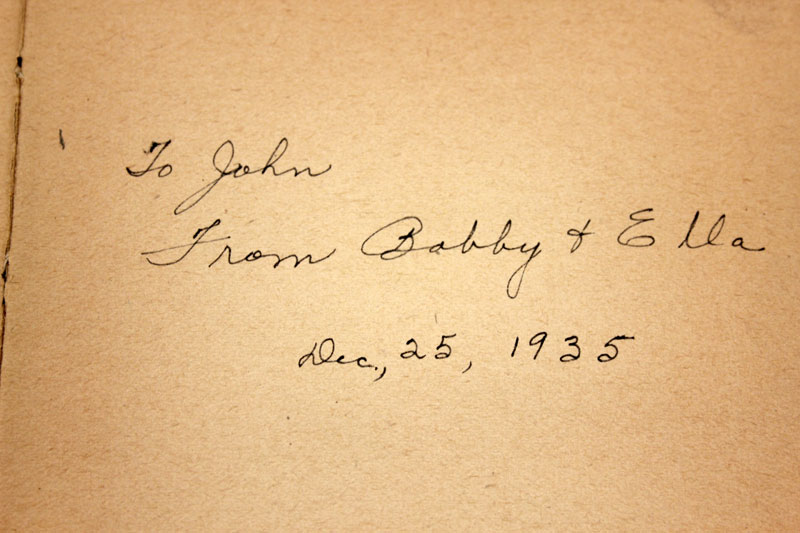 To John
From Bobby & Ella
Dec., 25, 1935